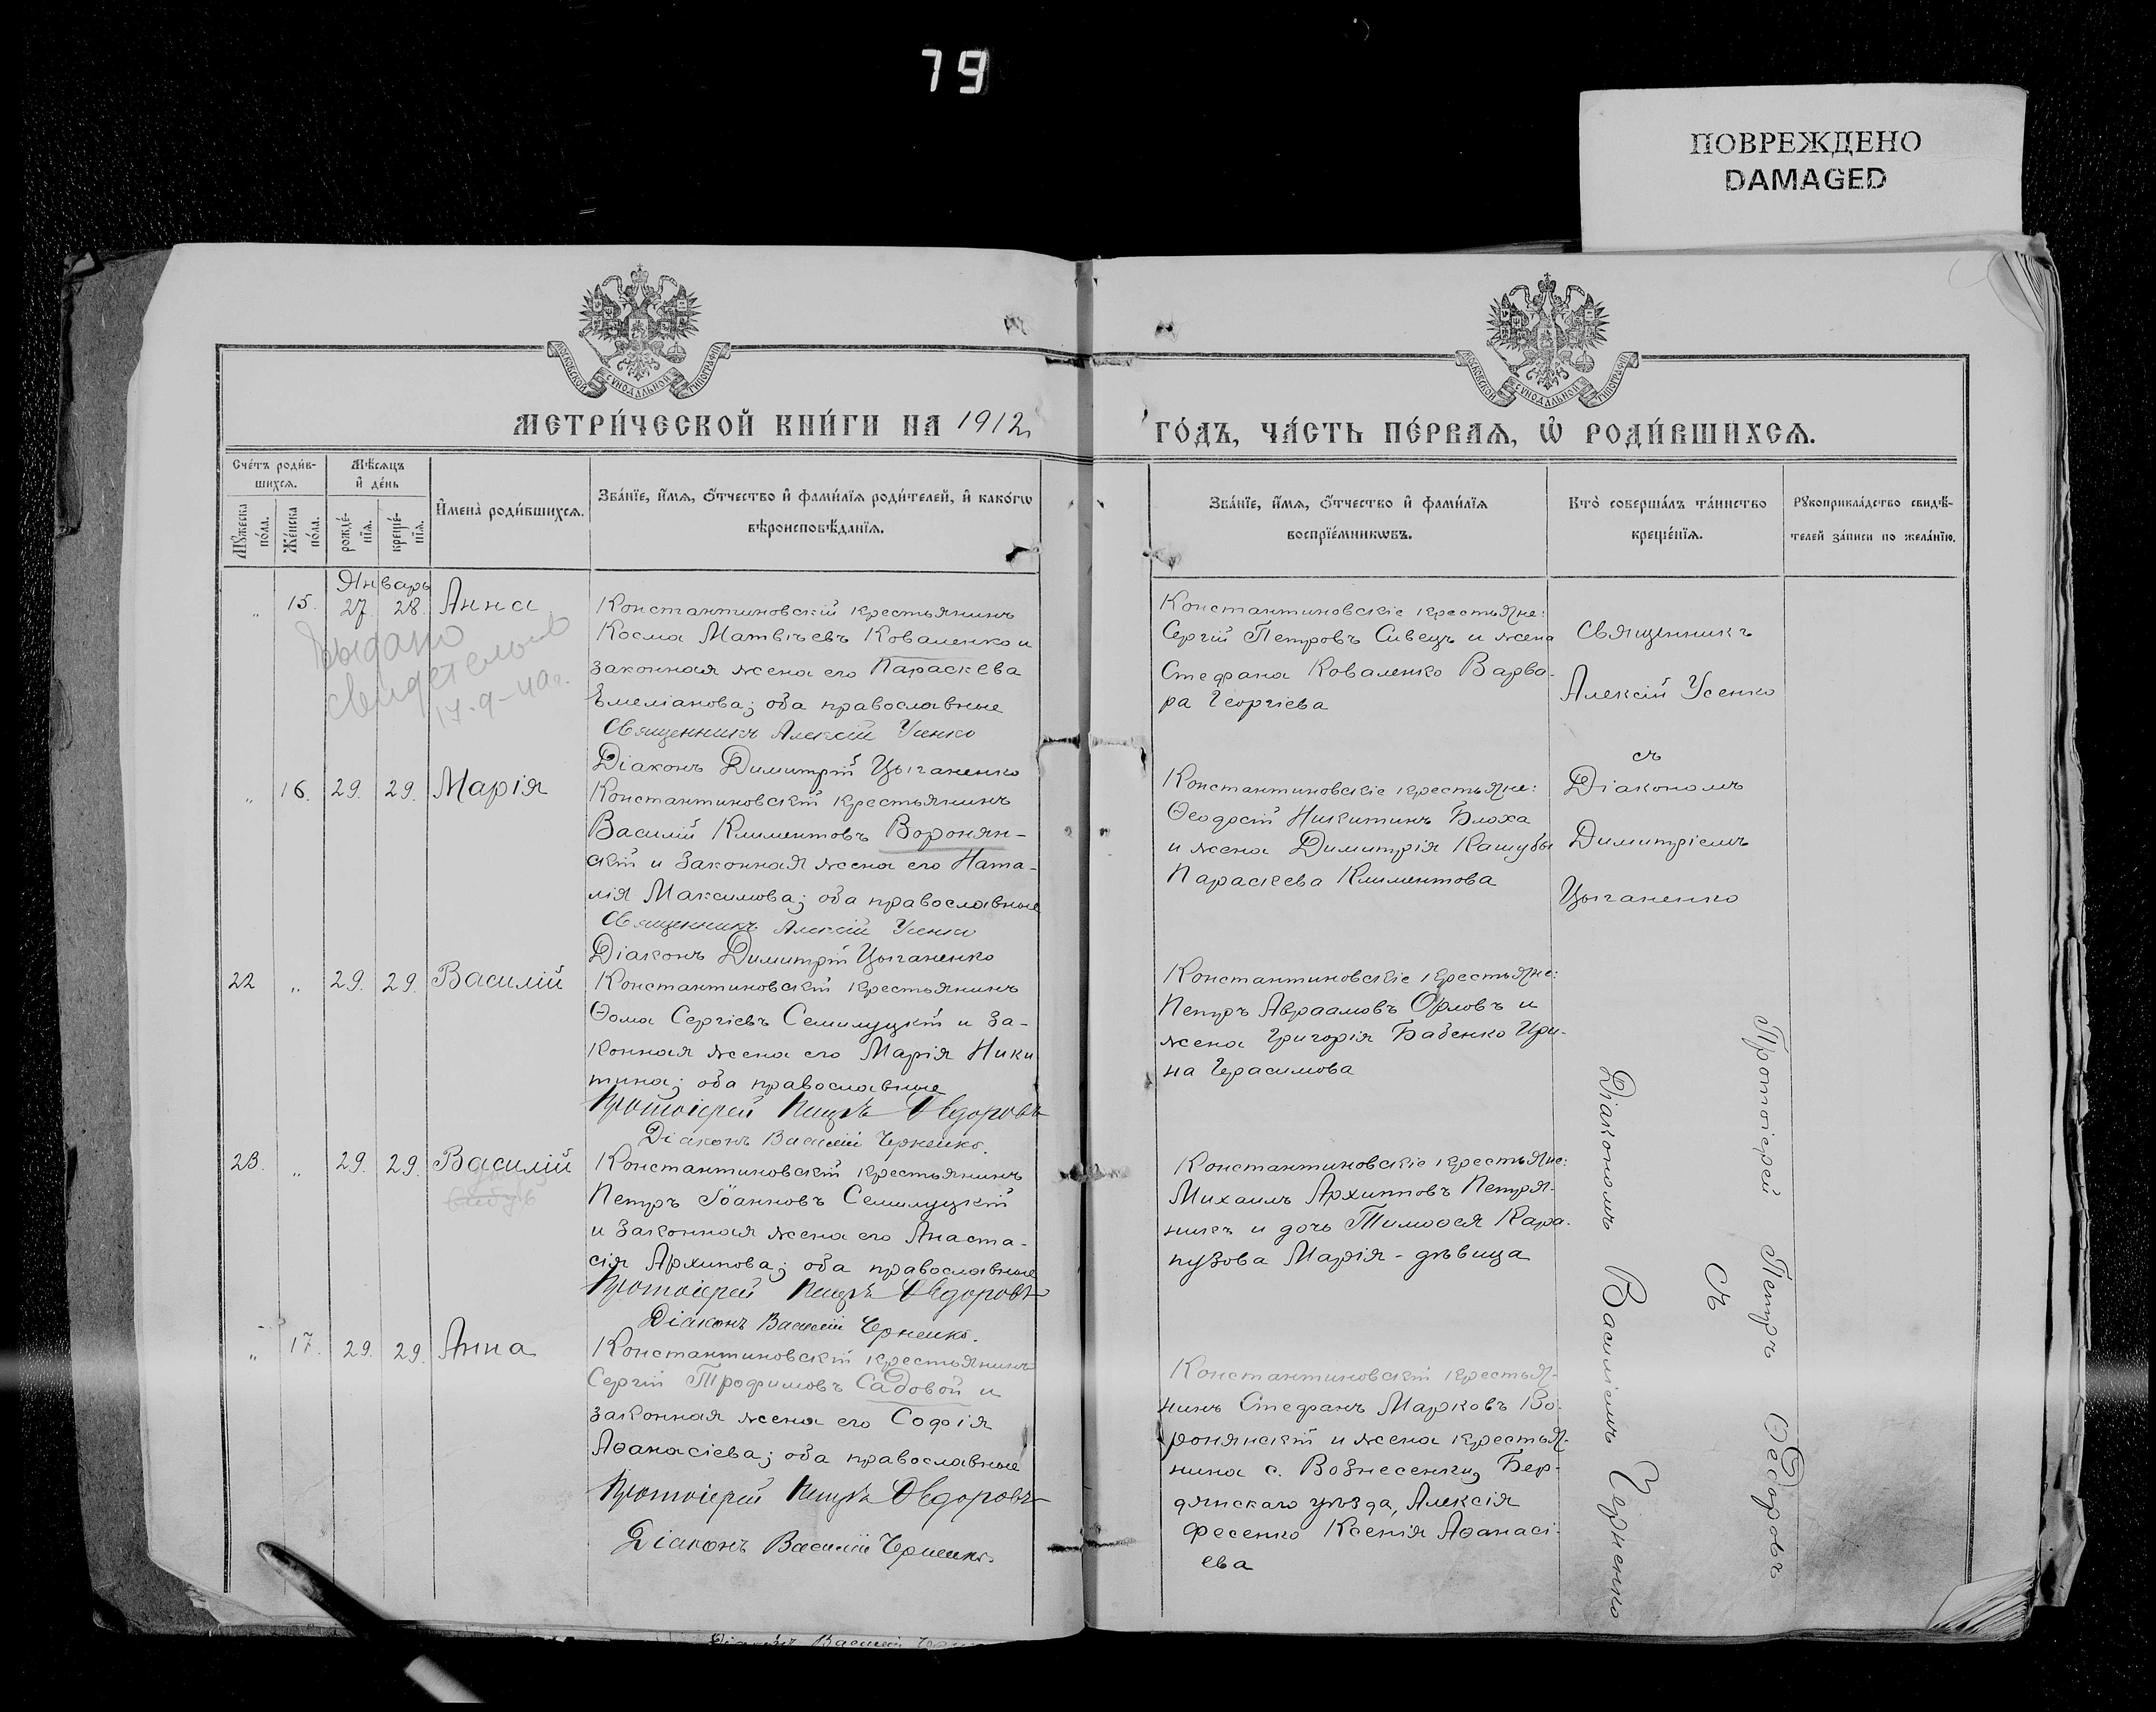 79
ПОВРЕЖДЕНО
DAMAGED
МОСКОВСКОЙ СѴНОДАЛЬНОЙ ТИПОГРАФІИ
МОСКОВСКОЙ СѴНОДАЛЬНОЙ ТИПОГРАФІИ
МЕТРИ́ЧЕСКОЙ КНИ́ГИ НА 1912
ГО́ДЪ, ЧА́СТЬ ПЕ́РВАѦ, Ѡ РОДИ́ВШИХСѦ.
Сче́тъ роди́в-
шихсѧ.
Мѣ́сѧцъ
и҆ де́нь
Мꙋ́жеска
по́ла.
Же́нска
по́ла.
рожде́-
нїѧ.
креще́-
нїѧ.
И҆мена̀ роди́вшихсѧ.
Зва́нїе, и҆́мѧ, ѻ҆́тчество и҆ фами́лїѧ роди́телей, и҆ како́гѡ
вѣроисповѣ́данїѧ.
Зва́нїе, и҆́мѧ, ѻ҆́тчество и҆ фами́лїѧ
воспрїе́мникѡвъ.
Кто̀ соверша́лъ та́инство
креще́нїѧ.
Рꙋкоприкла́дство свидѣ́-
телей за́писи по жела́нїю.
Январь
„ 15. 27. 28. Анна
Выдано
свидетельство
17-9-40г.
Константиновскій крестьянинъ
Косма Матвіевъ Коваленко и
законная жена его Параскева
Емеліанова; оба православные
Священникъ Алексій Усенко
Діаконъ Димитрій Цыганенко
Константиновскіе крестьяне:
Сергій Петровъ Сивецъ и жена
Стефана Коваленко Варва-
ра Георгіева
Священникъ
Алексій Усенко
съ
Діакономъ
Димитріемъ
Цыганенко
„ 16. 29. 29. Марія
Константиновскій крестьянинъ
Василій Климентовъ Воронян-
скій и законная жена его Ната-
лія Максимова; оба православные
Священникъ Алексій Усенко
Діаконъ Димитрій Цыганенко
Константиновскіе крестьяне:
Ѳеодосій Никитинъ Блоха
и жена Димитрія Кашубы
Параскева Климентова
22 „ 29. 29. Василій
Константиновскій крестьянинъ
Ѳома Сергіевъ Семилуцкій и за-
конная жена его Марія Ники
тина; оба православные
Протоіерей Петръ Ѳедоровъ
Діаконъ Василій Черненко.
Константиновскіе крестьяне:
Петръ Авраамовъ Орловъ и
жена Григорія Бабенко Ири-
на Герасимова
23. „ 29. 29. Василій
Константиновскій крестьянинъ
Петръ Іоанновъ Семилуцкій
и законная жена его Анаста-
сія Архипова; оба православные
Протоіерей Петръ Ѳедоровъ
Діаконъ Василій Черненко.
Константиновскіе крестьяне:
Михаилъ Архиповъ Петря-
никъ и дочь Тимоѳея Кара-
пузова Марія - дѣвица
„ 17. 29. 29. Анна
Константиновскій крестьянинъ
Сергій Трофимовъ Садовой и
законная жена его Софія
Аѳанасіева; оба православные
Протоіерей Петръ Ѳедоровъ
Діаконъ Василій Черненко.
Константиновскій крестья-
нинъ Стефанъ Марковъ Во-
ронянскій и жена крестья-
нина с. Вознесенки, Бер-
дянскаго уѣзда, Алексія
Фесенко Ксенія Аѳанасі-
ева
Протоіерей Петръ Ѳедоровъ
съ
Діакономъ Василіемъ Черненко
Діаконъ Василій